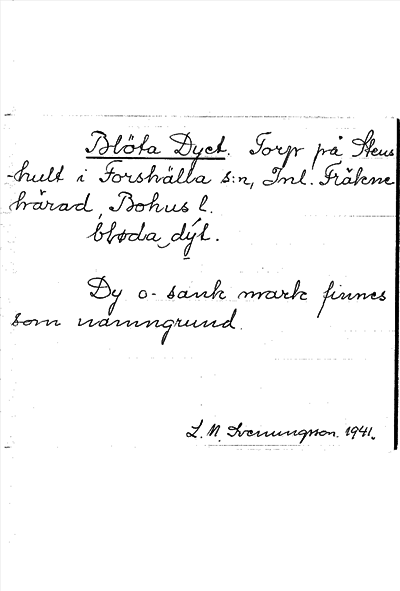 Blöta Dyet. Torp på Stens
-hult i Forshälla s:n, Inl. Fräkne
härad, Bohus l.
bløda dýt.
Dy o. sank mark finnes
som namngrund.
L. N. Svenungsson. 1941.